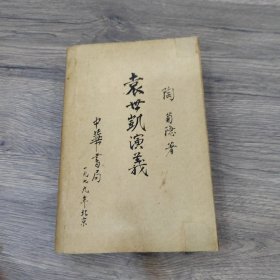 陶菊隐著
袁世凯演義
中華書局
一九七九年北京